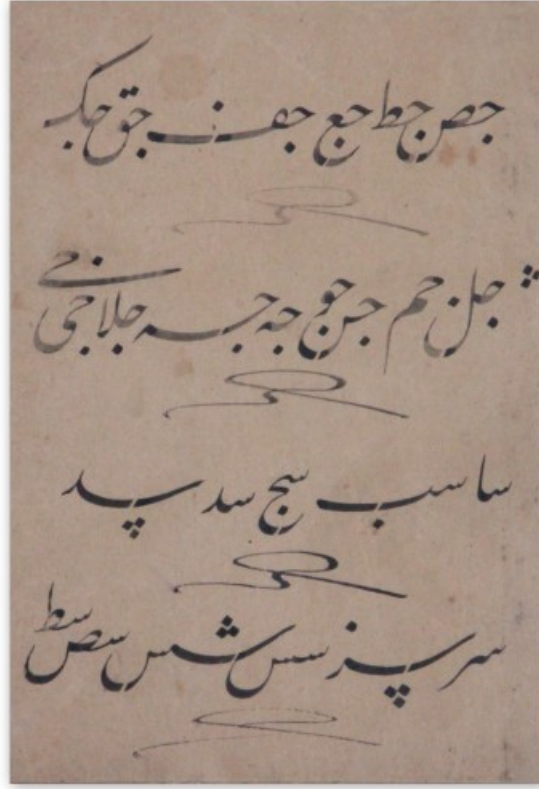 جص جط جع جف جق جک
جل جم جن جو جه جه جلا جی جے
سا سب سج سد سد
سر سر سس سس سص سط